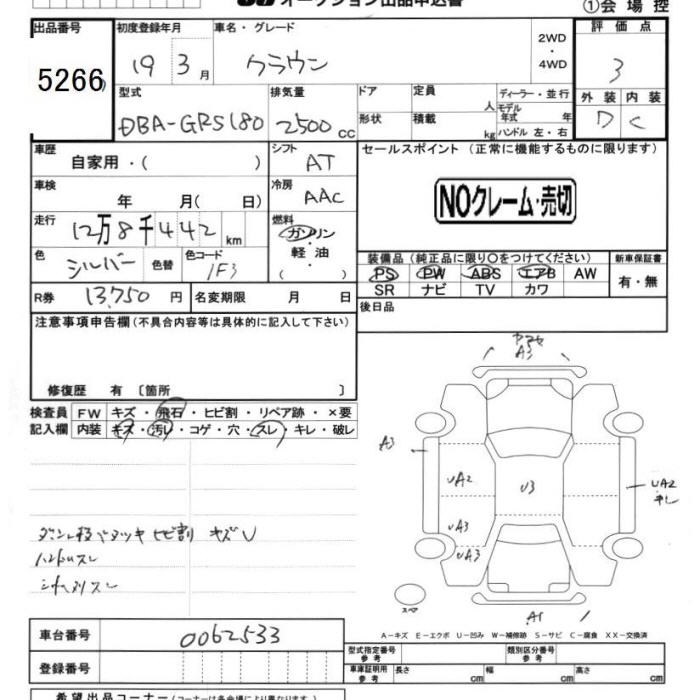 オークション出品申込書
①会場控
出品番号
5266
初度登録年月
19 3月
車名・グレード
クラウン
2WD
・
4WD
評価点
3
外装 内装
D C
型式
DBA-GRS180
排気量
2500 cc
ドア
形状
定員
人
積載
kg
ディーラー・並行
モデル
年式 年
ハンドル 左・右
車歴
自家用・( )
シフト
AT
セールスポイント(正常に機能するものに限ります)
NOクレーム・売切
車検
年 月( 日)
冷房
AAC
走行
12万8千442 km
燃料
ガソリン
・
軽油
・
( )
色
シルバー
色替
色コード
1F3
装備品(純正品に限り○をつけてください)
PS PW ABS エアB AW
SR ナビ TV カワ
新車保証書
有・無
R券
13,750 円
名変期限 月 日
後日品
注意事項申告欄(不具合内容等は具体的に記入して下さい)
修復歴 有〔箇所 〕
検査員
記入欄
FW キズ・飛石・ヒビ割・リペア跡・×要
内装 キズ・汚レ・コゲ・穴・スレ・キレ・破レ
A3
A3
UA2
U3
UA2
UA3
UA3
A1
ヒビ割 キズU
スペア
A-キズ E-エクボ U-凹み W-補修跡 S-サビ C-腐食 XX-交換済
車台番号
0062533
登録番号
型式指定番号
参考
類別区分番号
参考
車庫証明用
参考
長さ cm 幅 cm 高さ cm
希望出品コーナー